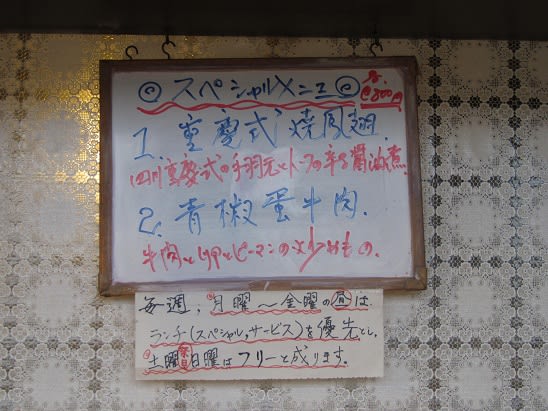 ◎スペシャルメニュー◎ 各 @800円
1. 重慶式焼鳳翅.
四川重慶式の手羽元とトーフの辛子醤油煮.
2. 青椒蛋牛肉.
牛肉と卵とピーマンのいためもの.
毎週, 月曜〜金曜の昼は
ランチ(スペシャル,サービス)を優先とし,
土曜 祭日 日曜はフリーと成ります.